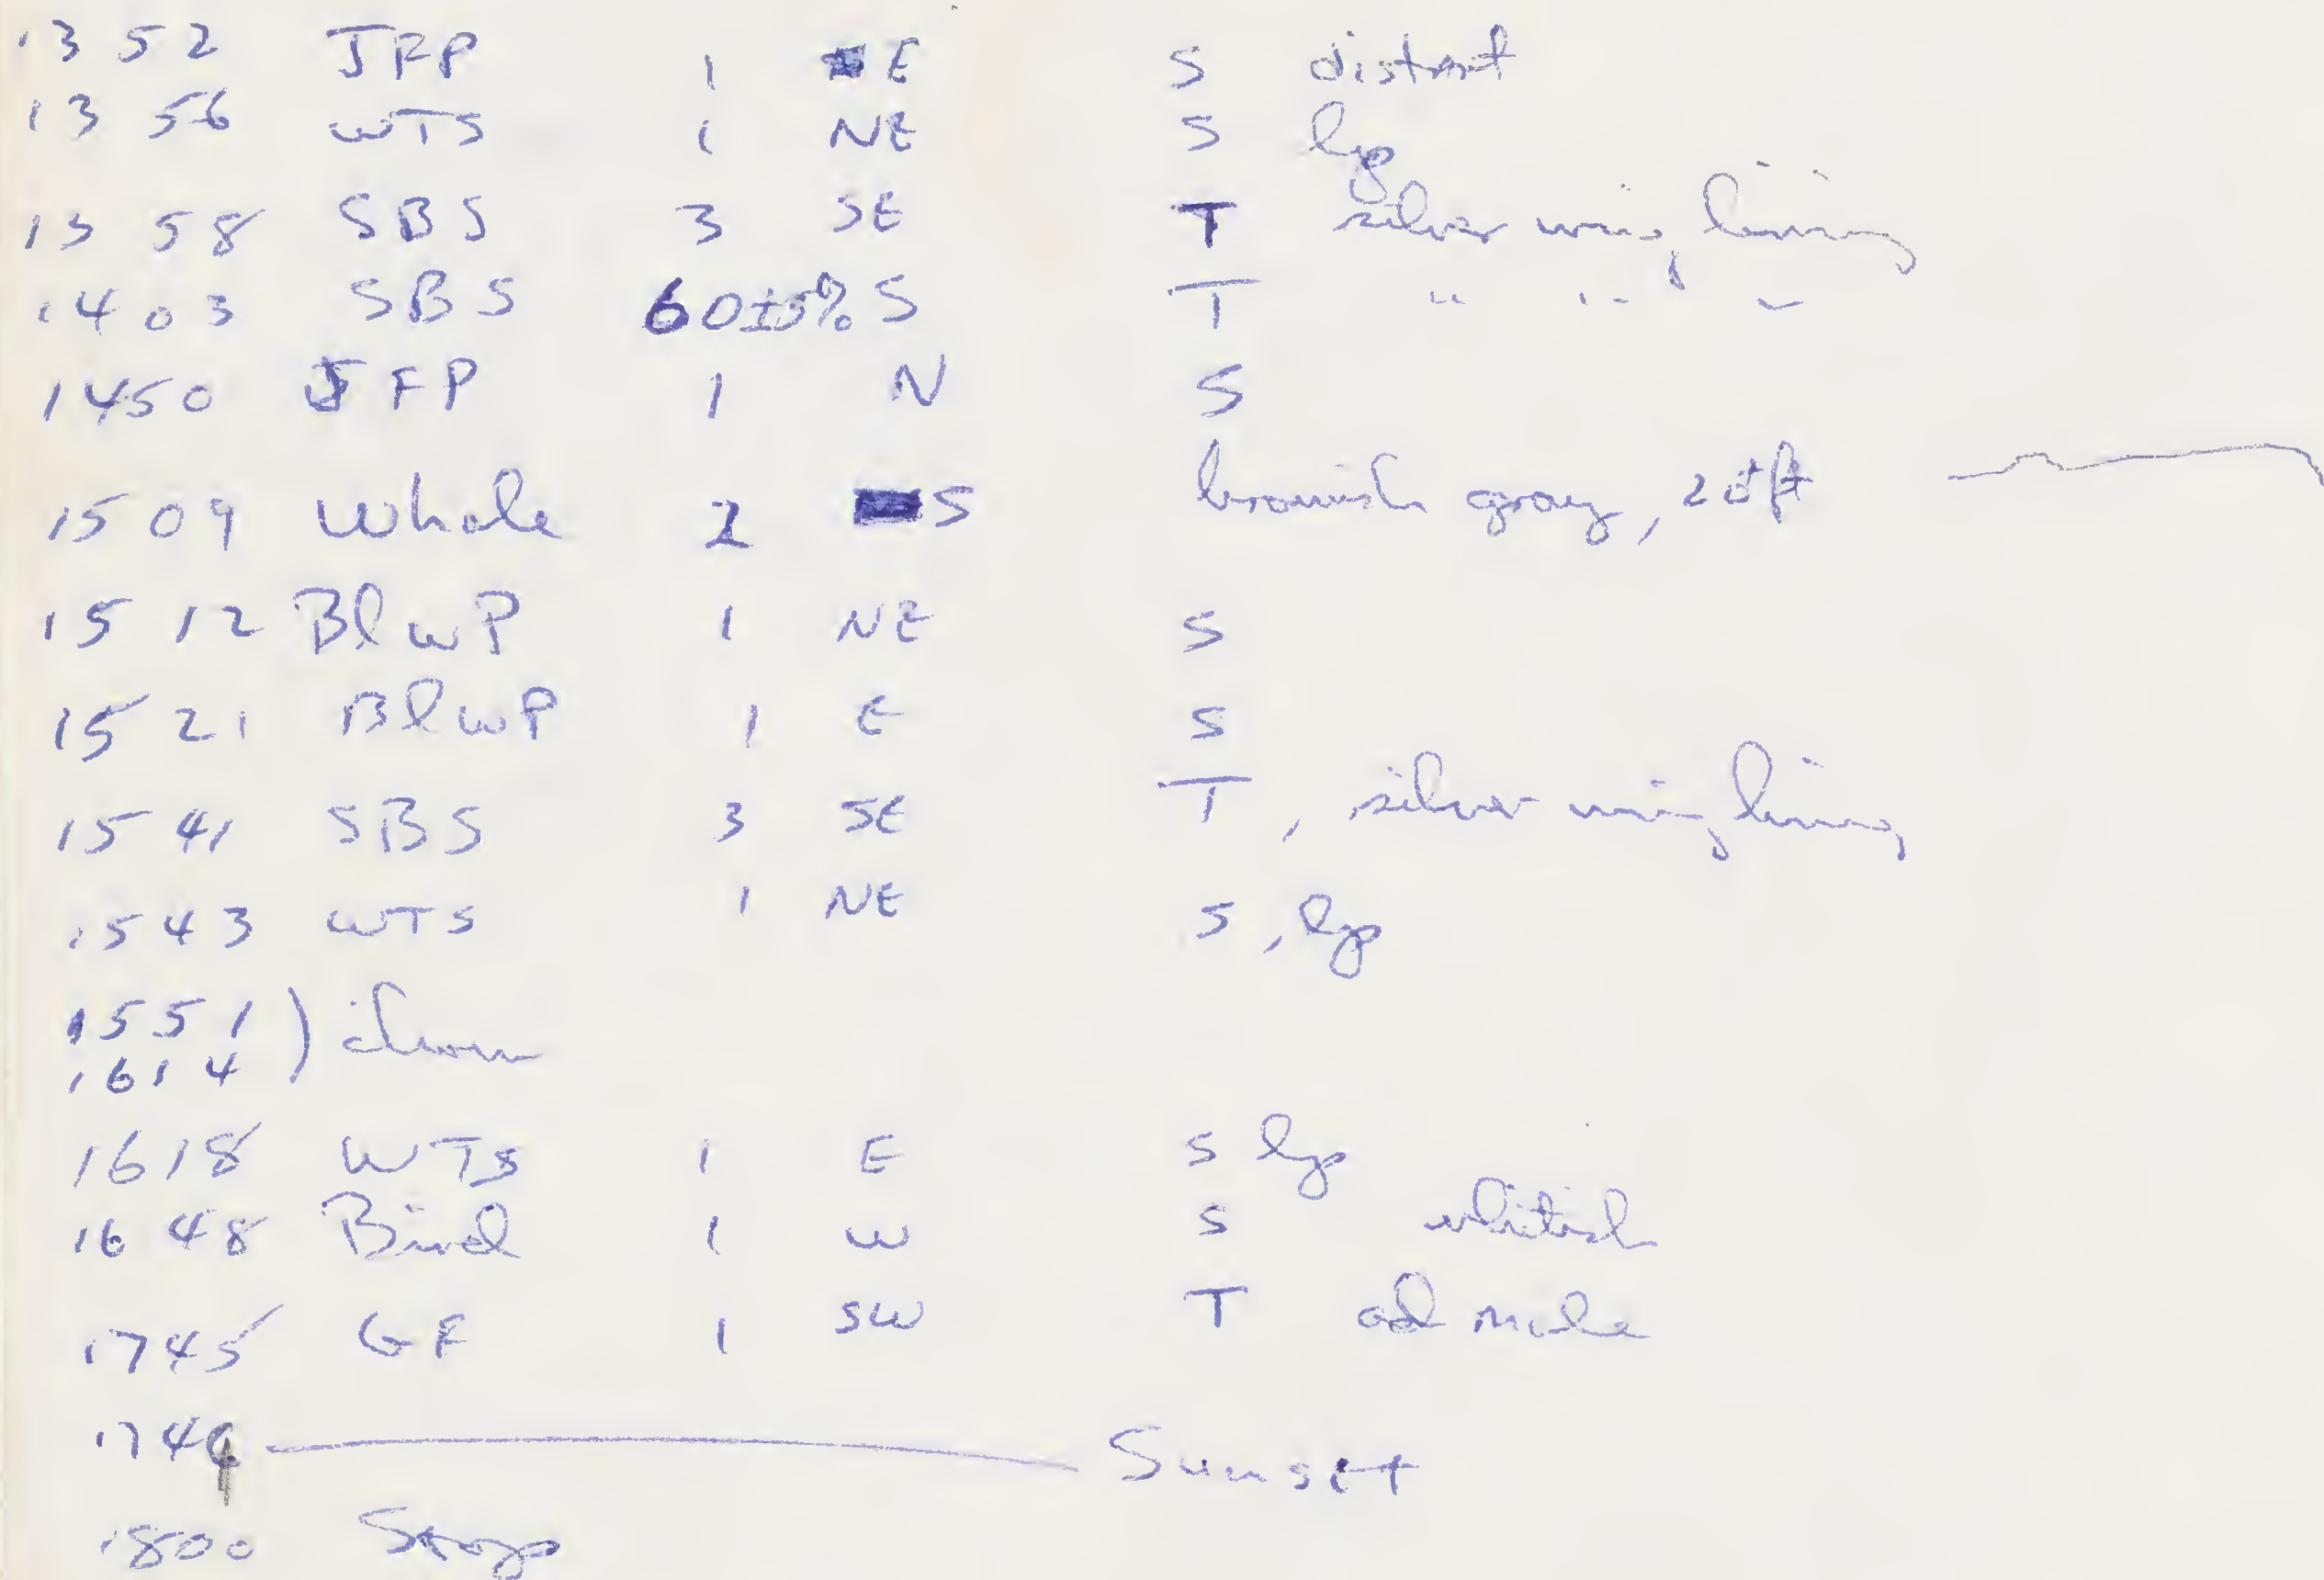 1352 JFP 1 E S distant
1356 WTS 1 NE S lp
1358 SBS 3 SE T silver wing lining
1403 SBS 60±5% S T " " "
1450 JFP 1 N S
1509 Whale 2 S brownish gray, 20ft
1512 BlwP 1 NE S
1521 BlwP 1 E S
1541 SBS 3 SE T, silver wing lining
1543 WTS 1 NE S, lp
1551
1614 ) chow
1618 WTS 1 E S lp
1648 Bird 1 W S whitish
1745 GF 1 SW T ad male
1749 Sunset
1800 Stop